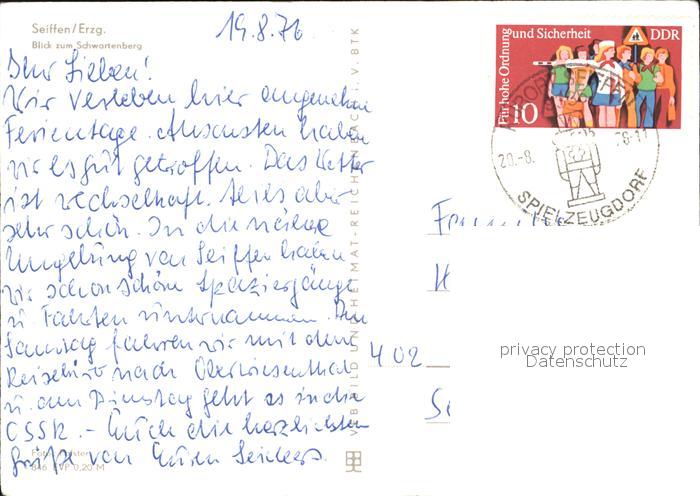 Seiffen/Erzg.
Blick zum Schwartenberg
19.8.76
Ihr Lieben!
Wir verleben hier angenehme
Ferientage. Ansonsten haben
wir es gut getroffen. Das Wetter
ist wechselhaft. Alles aber
sehr schön. In die nähere
Umgebung von Seiffen haben
wir schon schöne Spaziergänge
u. Fahrten unternommen. Am
Samstag fahren wir mit dem
Reisebüro nach Oberwiesenthal
u. am Dienstag geht es in die
CSSR. - Euch die herzlichsten
Grüße von Euren
EVP 0,20 M
VERLAG BILD UND HEIMAT · REICHENBACH i. V. BTK
Für hohe Ordnung und Sicherheit
DDR
10
20.-8.
SPIELZEUGDORF
402
privacy protection
Datenschutz